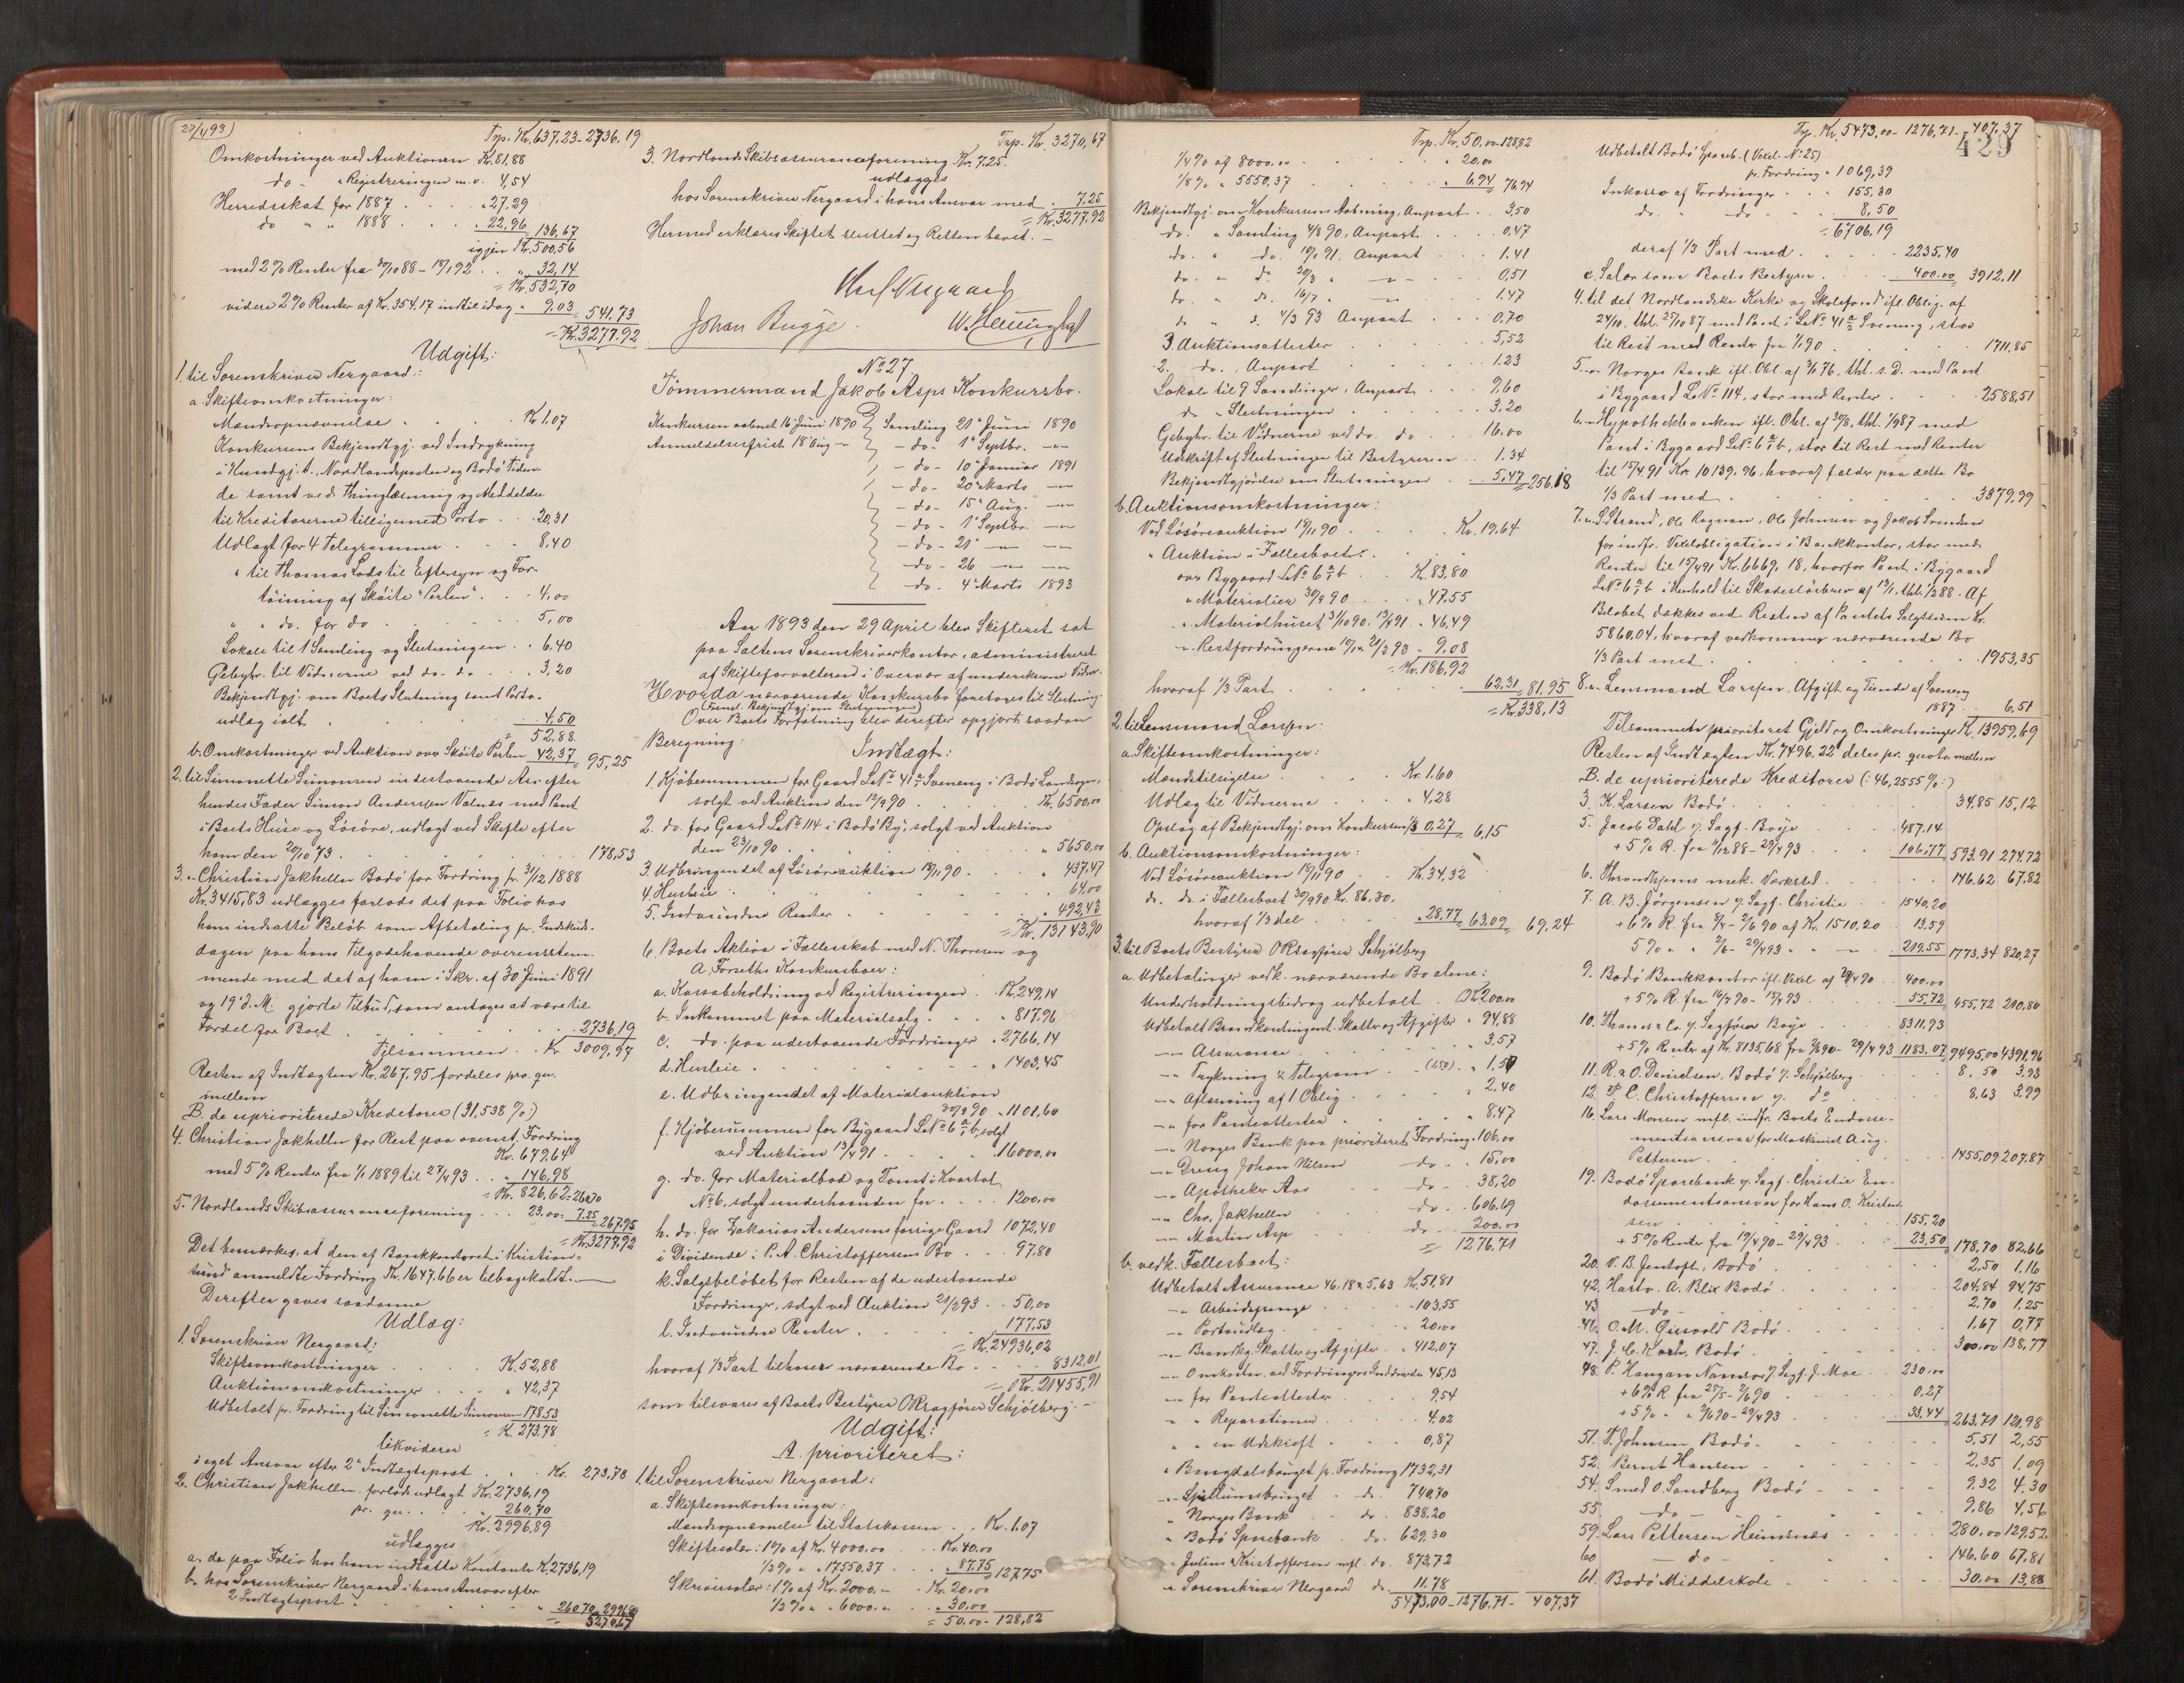 27/4 93)
Trp. Kr. 637,23 - 2736,19
Omkostninger ved Auktionen Kr. 81,88
do - " Registreringen m.v. 4,54
Herredsskat for 1887 . . . " 27,29
do " " 1888 . . . " 22,96 136,67
igjen Kr. 500,56
med 2% Renter fra 30/10 88 - 18/1 92 . . " 32,14
= Kr. 532,70
videre 2% Renter af Kr. 354,17 indtil idag " 9,03 = 541,73
= Kr. 3277,92
Udgift:
1. til Sorenskriver Nergaard:
a. Skifteomkostninger:
Mændsopnævnelse . . . Kr. 1,07
Konkursens Bekjendtgj. ved Indrykning
i Kundgj. t., Nordlandsposten og Bodö Tiden-
de samt ved Thinglæsning og Meddelelse
til Kreditorerne tilligemed Porto . . 20,31
Udlagt for 4 Telegrammer . . . 8,40
" til Thomas Lods til Eftersyn og For-
töining af Sköite "Perlen" . . . 4,00
" " do. for do . . . 5,00
Lokale til 1 Samling og Slutningen . . 6,40
Gebyhr. til Vidnerne ved do. do . . 3,20
Bekjendtgj. om Boets Slutning samt Porto-
udlæg ialt . . . 4,50
" 52,88.
b. Omkostninger ved Auktion over Sköite Perlen 42,37 = 95,25
2. til Simonette Simonsen indestaaende Arv efter
hendes Fader Simon Anderssen Valnæs med Pant
i Boets Huse og Lösöre, udlagt ved Skifte efter
ham den 20/10 73 . . . 178,53
3. " Christian Jakhelln Bodö for Fordring pr. 31/12 1888
Kr. 3415,83 udlægges forlods det paa Folio hos
ham indsatte Belöb som Afbetaling pr. Indskuds-
dagen paa hans Tilgodehavende overensstem-
mende med det af ham i Skr. af 30 Juni 1891
og 19' d. M. gjorte Tilbud, som antages at være til
Fordel for Boet . . . 2736,19
Tilsammen . . Kr. 3009,97
Resten af Indtægten Kr. 267,95 fordeles pro. qu.
mellem
B. de uprioriterede Kreditorer (31,538%:)
4. Christian Jakhelln for Rest paa ovenst. Fordring
Kr. 679,64
med 5% Renter fra 1/1 1889 til 27/4 93 . . " 146,98
= Kr. 826,62 = 260,70
5. Nordlands Skibsassuranceforening . . . 23,00 = 7,25 = 267,95
= Kr. 3277,92
Det bemærkes, at den af Bankkontoret i Kristian-
sund anmeldte Fordring Kr. 1647,66 er tilbagekaldt. —
Derefter gaves saadanne
Udlæg:
1. Sorenskriver Nergaard:
Skifteomkostninger . . . Kr. 52,88
Auktionsomkostninger . . . " 42,37
Udbetalt pr. Fordring til Simonette Simonsen 178,53
= Kr. 273,78
likviderer
i eget Ansvar efter 2' Indtægtspost . . Kr. 273,78
2. Christian Jakhelln forlods udlagt Kr. 2736,19
pr. qu. . . . 260,70
Kr. 2996,89
udlægges
a. de paa Folio hos ham indsatte Kontanter Kr. 2736,19
b. hos Sorenskriver Nergaard i hans Ansvar efter
2' Indtægtspost . . . " 260,70 = 2996,89
= 3270,67
Trp. Kr. 3270,67
3. Nordlands Skibsassuranceforening Kr. 7.25.
udlægges
hos Sorenskriver Nergaard i hans Ansvar med . 7.25
= Kr. 3277,92
Hermed erklæres Skiftet sluttet og Retten hævet. —
Nergaard
Johan Bugge.
No 27
Tömmermand Jakob Asps Konkursbo.
Konkursen aabnet 16' Juni 1890 Samling 20' Juni 1890
Anmeldelsesfrist 18' Aug — - do - 1' Septbr. —
- do - 10' Januar 1891
- do - 20' Marts —
- do - 15' Aug. —
- do - 1' Septbr. —
- do - 21' — —
- do - 26 — —
- do - 4' Marts 1893
Aar 1893 den 29 April blev Skifteret sat
paa Saltens Sorenskriverkontor, administreret
af Skifteforvalteren i Overvær af underskrevne Vidner.
Hvorda nærværende Konkursbo foretoges til Slutning
(Freml. Bekjendtgj. om Slutningen)
Over Boets Forfatning blev derefter opgjort saadan
Beregning:
Indtægt:
1. Kjöbesummen for Gaard L.No 41 Sveneng i Bodö Landsogn,
solgt ved Auktion den 12/9 90 . . . Kr. 6500,00
2. do. for Gaard L.No 114 i Bodö By, solgt ved Auktion
den 23/10 90 . . . " 5650,00
3. Udbringendet af Lösöreauktion 19/11 90 . . . " 437,47
4. Husleie . . . " 64,00
5. Indvundne Renter . . . " 492,43
= Kr. 13143,90
6. Boets Aktiva i Fællesskab med N. Thoresen og
A. Forseths Konkursboer:
a. Kassabeholdning ved Registreringen . Kr. 249,14
b. Inkommet paa Materialsalg . . . " 817,96
c. do. paa udestaaende Fordringer " 2766,14
d. Husleie . . . " 1403,45
e. Udbringendet af Materialauktion
30/9 90 " 1101,60
f. Kjöbesummen for Bygaard L.No 6 a/1 b, solgt
ved Auktion 13/4 91 . . . " 16000,00
g. do. for Materialbod og Tomt i Kvartal
No 6, solgt underhaanden for . . . 1200,00
h. do. for Zakarias Andersens forrige Gaard 1072,40
i Dividende i P. A. Christoffersens Bo . . . 97,80
k. Salgsbelöbet for Resten af de udestaaende
Fordringer, solgt ved Auktion 21/2 93 . . 50,00
l. Indvundne Renter . . . 177,53
= Kr. 24936,02
hvoraf 1/3 Part tilhører nærværende Bo . . . 8312,01
= Kr. 21455,91
som tilsvares af Boets Bestyrer ORsagförer Schjölberg. —
Udgift:
A. prioriteret:
1. til Sorenskriver Nergaard:
a. Skifteomkostninger:
Mændsopnævnelse til Statskassen . . Kr. 1.07
Skiftesalær: 1% af Kr. 4000,00 . . . Kr. 40,00
1/2% " " 17550,37 . . . " 87,75 = 127,75
Skriversalær: 1% af Kr. 2000,00 . . Kr. 20,00
1/2% " " 6000,00 . . " 30,00
= 50,00 - 128,82
Trp. Kr. 50,00 - 128,82
1/4% af 8000,00 . . . " 20,00
1/8% " 5550,37 . . . " 6,94 = 76,94
Bekjendtgj. om Konkursens Aabning, Anpart . . 3,50
do. " Samling 4/8 90, Anpart . . . 0,47
do. " do. 10/1 91. Anpart . . . 1.41
do. " do 20/3 " — . . . 0,51
do. " do. 16/7 " — . . . 1.47
do " do. 4/3 93 Anpart . . . 0,70
3. Auktionsattester . . . 5,52
2. do. , Anpart . . . 1.23
Lokale til 9 Samlinger, Anpart . . . 9,60
do " Slutningen . . . 3,20
Gebyhr. til Vidnerne ved do. do . . 16,00
Udskrift af Slutningen til Bestyreren . . 1.34
Bekjendtgjörelse om Slutningen . . 5,47 = 256,18
b. Auktionsomkostninger:
Ved Lösöreauktion 19/11 90 . . . Kr. 19,64
" Auktion i Fællesboet:
over Bygaard L.No 6 a/1 b . . Kr. 83,80
" Materialier 30/9 90 . . . " 47,55
" Materialhuset 31/10 90. 13/4 91 . " 46,49
" Restfordringerne 21/2 93 - 9,08
= Kr. 186,92
hvoraf 1/3 Part . . . 62,31 = 81,95
= Kr. 338,13
2. til Lensmand Larssen:
a. Skifteomkostninger:
Mandstilsigelse . . . Kr. 1.60
Udlæg til Vidnerne . . . " 4,28
Opslag af Bekjendtgj. om Konkursen 1/3 0,27 = 6,15
b. Auktionsomkostninger:
Ved Lösöreauktion 19/11 90 . . . Kr. 34,32
do. do. i Fællesboet 30/9 90 Kr. 86,30.
hvoraf 1/3 del . . . " 28,77 = 63,09 = 69,24
3. til Boets Bestyrer ORsagförer Schjölberg
a. Udbetalinger vedk. nærværende Bo alene:
Underholdningsbidrag udbetalt . Kr. 200,00
Udbetalt Brandkontingent. Skatter og Afgifter " 94,88
—" Assurance . . . " 3,57
—" Trykning & Telegram . . (1.50) . " 1,50
—" Aflæsning af 1 Oblig. . . . " 2.40
—" for Panteattester . . . " 8.47
—" Norges Bank paa prioriteret Fordring " 106,00
—" Dreng Johan Nilsen do - . 15,00
—" Apotheker Aas do - . 38,20
—" Chr. Jakhelln do - . 606,69
—" Martin Asp do - 200,00
= 1276,71
b. vedk. Fællesboet:
Udbetalt Assurance 46,18 & 5,63 Kr. 51,81
—" Arbeidspenge . . . " 103,55
—" Portoudlæg . . . " 20,00
—" Brandkg. Skatter og Afgifter . . " 412,07
—" Omkostn. ved Fordringers Inddrivelse 45,13
—" for Panteattester . . . 9,54
" " Reparationer . . . 4,02
" " en Udskrift . . . 0,87
" Bangdalsbruget pr. Fordring 1732,31
—" Spillumsbruget - do. 740,70
" Norges Bank - do. 838,20
" Bodö Sparebank do. 629,30
" Julius Kristoffersen mfl. do. 873,72
" Sorenskriver Nergaard do. 11.78
5473,00 - 1276,71 - 407,37
Trp. Kr. 5473,00 - 1276,71 - 407,37
429
Udbetalt Bodö Spareb. (Vexel. No 25)
pr. Fordring " 1069,39
Inkasso af Fordringer . . . 155,30
do. " do - . . . 8,50
= 6706,19
deraf 1/3 Part med . . . 2235,40
c. Salær som Boets Bestyrer . . . 400,00 = 3912,11
4. til det Nordlandske Kirke og Skolefond ifl. Oblig. af
24/10, thl. 27/10 87 med Pant i L.No 41 Sveneng, stor
til Rest med Renter fra 1/1 90 . . . 1711,85
5. " Norges Bank ifl. Obl. af 3/1 76, thl. s. D. med Pant
i Bygaard L.No 114, stor med Renter . . . 2588,51
6. " Hypothekbanken ifl. Obl. af 30/8, thl. 1/9 87 med
Pant i Bygaard L.No 6 a/1 b, stor til Rest med Renter
til 15/4 91 Kr. 10139,96, hvoraf falder paa dette Bo
1/3 Part med . . . 3379,99
7. " S. Strand, Ole Rognan, Ole Johnsen og Jakob Svendsen
for indfr. Vexelobligation i Bankkontor, stor med
Renter til 15/4 91 Kr. 6669,18, hvorfor Pant i Bygaard
L.No 6 a/1 b i Henhold til Skadeslösbrev af 13/1, thl. 1/2 88. Af
Belöbet dækkes ved Resten af Pantets Salgssum Kr.
5860,04, hvoraf vedkommer nærværende Bo
1/3 Part med . . . 1953,35
8. " Lensmand Larssen, Afgift og Tiende af Sveneng
1887 . . 6,51
Tilsammen prioriteret Gjeld og Omkostninger Kr. 13959,69
Resten af Indtægten Kr. 7496,22 deles pr. quota mellem
B. de uprioriterede Kreditorer (: 46,2555%:)
3. K. Larsen Bodö . . . 34,85 15,12
5. Jacob Dahl v. Sagf. Boye . . . 487.14
+ 5% R. fra 11/12 88 - 29/4 93 . . . 106,77 593,91 274,72
6. Throndhjems mek. Værksted . . . 146,62 67,82
7. A. B. Jörgensen v. Sagf. Christie . . . 1540,20
+ 6% R. fra 9/4 - 2/6 90 af Kr. 1510,20 . . 13,59
5% " " 2/6 - 29/4 93 " " — . . 219,55 1773,34 820,27
9. Bodö Bankkontor ifl. Vexel af 24/4 90 . . 400,00
+ 5% R. fra 16/7 90 - 13/4 93 . . . 55,72 455,72 210,80
10. Thams & Co. v. Sagförer Boye . . . 8311,93
+ 5% Renter af Kr. 8135,68 fra 2/6 90 - 29/4 93 1183,07 9495,00 4391,96
11. R. & O. Danielsen, Bodö v. Schjölberg . . . 8,50 3,93
12. P. C. Christoffersen v. do . . . 8,63 3,99
16. Lars Monsen mfl. indfr. Boets Endosse-
mentsansvar for Maskinist Aug.
Pettersen . . . 1455,09 207,87
19. Bodö Sparebank v. Sagf. Christie En-
dossementsansvar for Hans O. Kristen-
sen . . . 155,20
+ 5% Renter fra 19/4 90 - 29/4 93 . . . 23,50 178,70 82,66
20. V. B. Jentoft, Bodö . . . 2,50 1,16
42. Hartv. A. Blix Bodö . . . 204,84 94,75
43 — do — . . . 2,70 1,25
46. O. M. Qisvold Bodö . . . 1.67 0,77
47. J. C. Koch, Bodö . . . 300,00 138,77
48. P. Haugan Namsos v. Sagf. J. Moe . . 230,00
+ 6% R. fra 27/5 - 2/6 90 . . . 0,27
+ 5% " " 2/6 90 - 29/4 93 . . . 33,44 263,71 121,98
51. T. Johnsen Bodö . . . 5,51 2,55
52. Bernt Hansen . . . 2,35 1,09
54. Smed O. Sandberg Bodö . . . 9.32 4.30
55 — do — . . . 9.86 4,56
59. Lars Pettersen Heimsnæs . . . 280,00 129,52
60 — do — . . . 146,60 67,81
61. Bodö Middelskole . . . 30,00 13,88